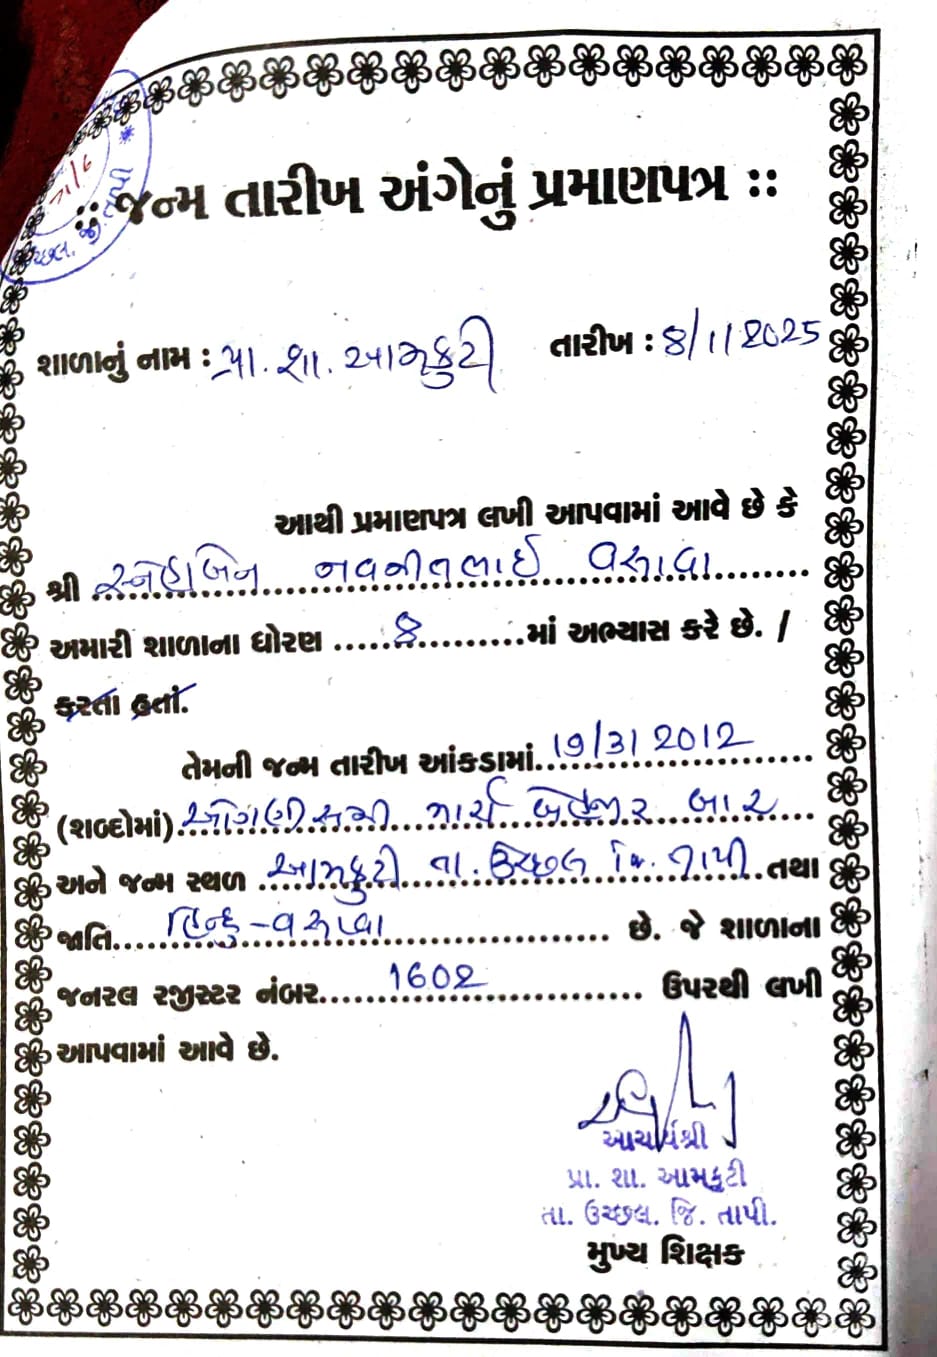 ઉચ્છલ. જી. તાપી *
:: જન્મ તારીખ અંગેનું પ્રમાણપત્ર ::
શાળાનું નામ : પ્રા. શા. આમકુટી તારીખ : 8/1/2025
આથી પ્રમાણપત્ર લખી આપવામાં આવે છે કે
શ્રી સ્નેહાબેન નવનીતભાઈ વસાવા
અમારી શાળાના ધોરણ .....૪..........માં અભ્યાસ કરે છે. /
કરતા હતાં.
તેમની જન્મ તારીખ આંકડામાં. 19/3/2012
(શબ્દોમાં) ઓગણીસમી માર્ચ બેહજાર બાર
અને જન્મ સ્થળ આમકુટી તા. ઉચ્છલ જિ. તાપી. તથા
જાતિ. હિન્દુ-વસાવા છે. જે શાળાના
જનરલ રજીસ્ટર નંબર. 1602 ઉપરથી લખી
આપવામાં આવે છે.
આચાર્યશ્રી
પ્રા. શા. આમકુટી
તા. ઉચ્છલ. જિ. તાપી.
મુખ્ય શિક્ષક